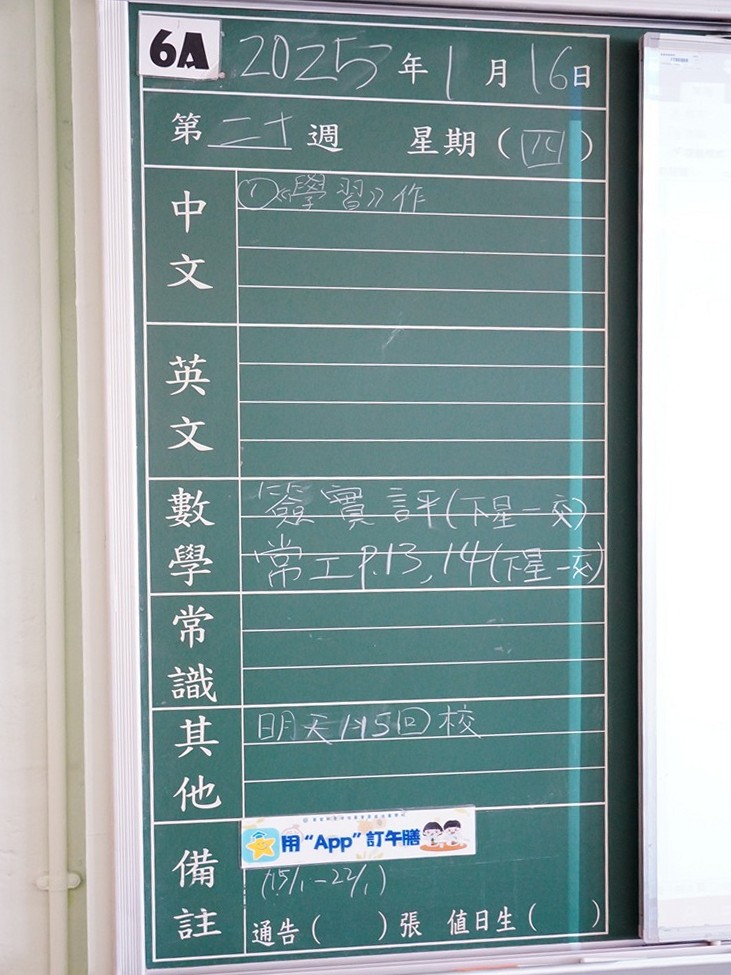 6A 2025年1月16日
第二十週 星期(四)
中文 ①《學習》作
英文
數學 簽實評(下星一交)
常工P.13,14(下星一交)
常識
其他 明天1:15回校
備註 用“App”訂午膳
(15/1-22/1)
通告( )張 值日生( )